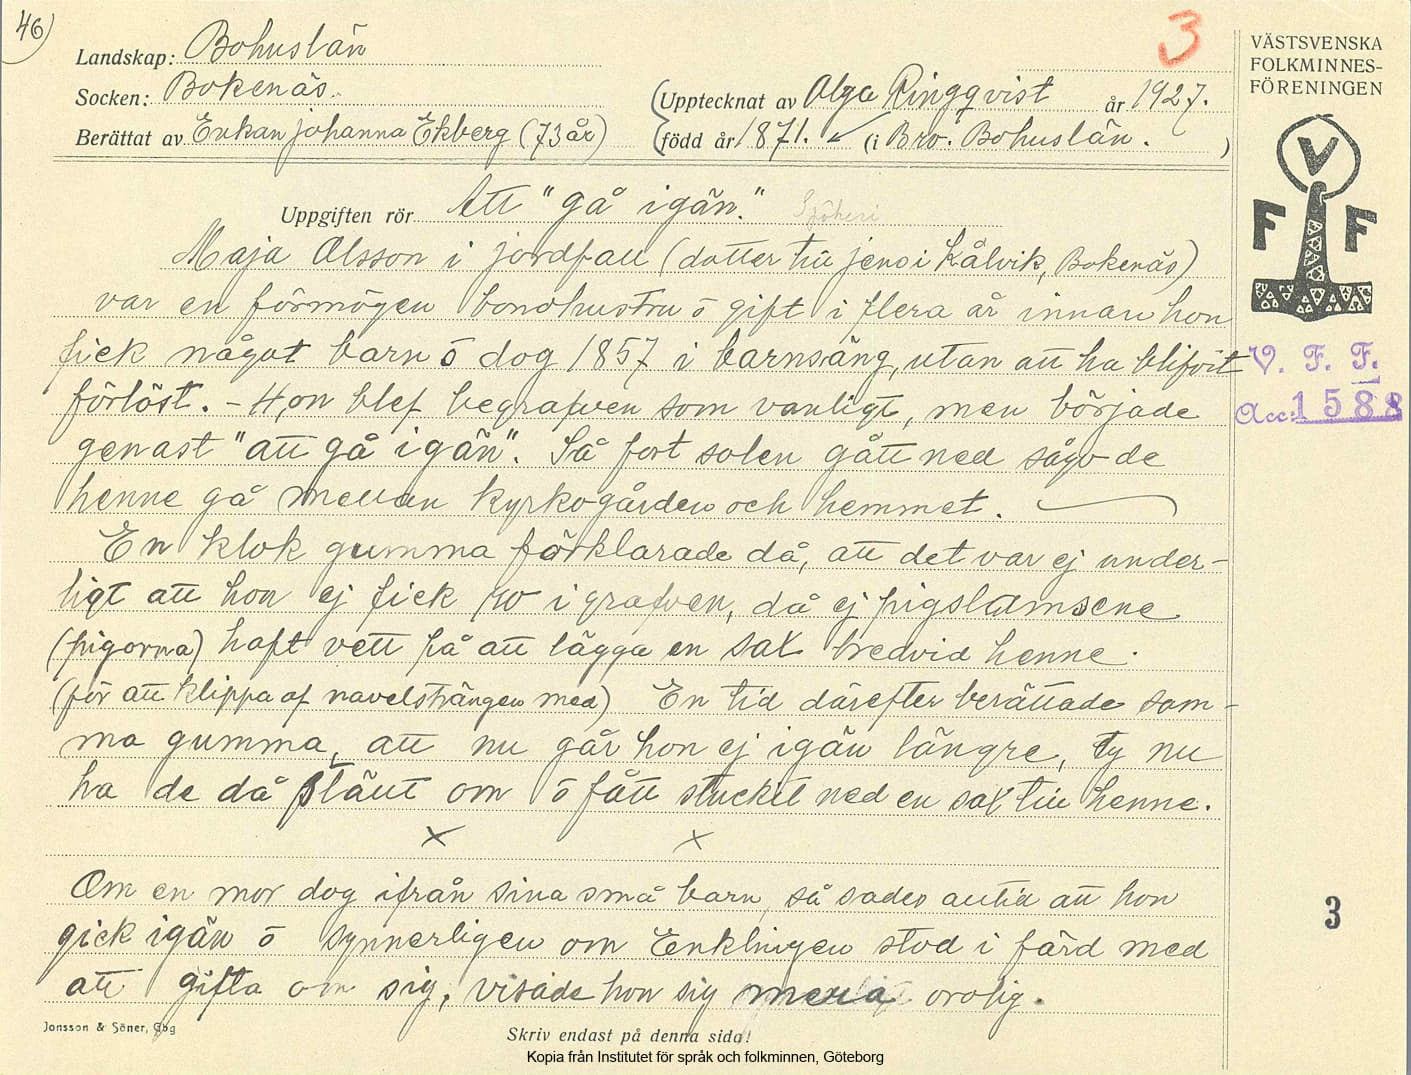 46)
3
Landskap: Bohuslän
Socken: Bokenäs.
Berättat av Enkan Johanna Ekberg (73 år)
Upptecknat av Olga Ringqvist år 1927.
född år 1871. (i Bro. Bohuslän. )
VÄSTSVENSKA
FOLKMINNES-
FÖRENINGEN
V
F F
V. F. F.
Acc: 1588
Uppgiften rör Att "gå igän."
Maja Olsson i jordfall (dotter till jens i Kålvik, Bokenäs)
var en förmögen bondhustru ō gift i flera år innan hon
fick något barn ō dog 1857 i barnsäng, utan att ha blifvit
förlöst. - Hon blef begrafven som vanligt, men började
genast "att gå igän". Så fort solen gått ned sågo de
henne gå mellan kyrkogården och hemmet.
En klok gumma förklarade då, att det var ej under-
ligt att hon ej fick ro i grafven, då ej pigslamsene
(pigorna) haft vett på att lägga en sax bredvid henne.
(för att klippa af navelsträngen med) En tid därefter berättade sam-
ma gumma, att nu går hon ej igän längre, ty nu
ha de då släut om ō fått stucket ned en sax till henne.
x x
Om en mor dog ifrån sina små barn, så sades alltid att hon
gick igän ō synnerligen om Enklingen stod i färd med
att gifta om sig, visade hon sig orolig.
3
Jonsson & Söner, Gbg
Skriv endast på denna sida!
Kopia från Institutet för språk och folkminnen, Göteborg